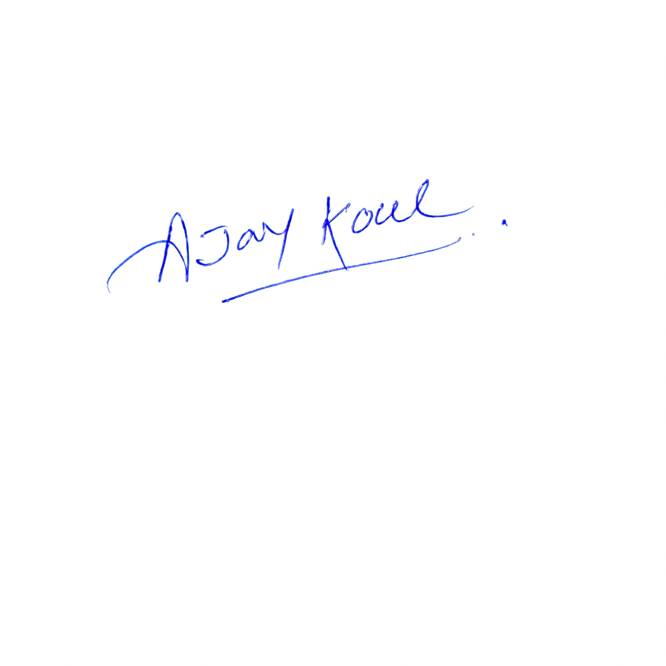 AJay Koul..